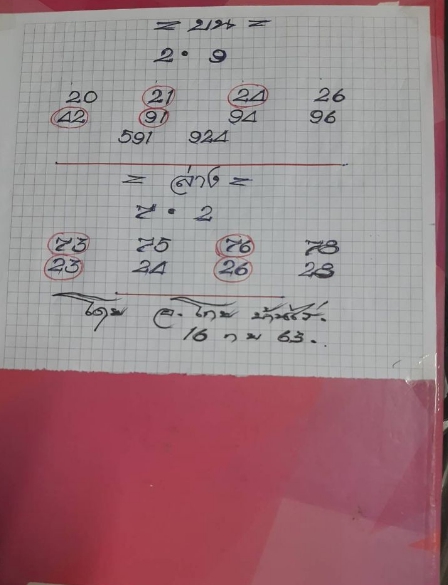 = บน =
2 · 9
20 21 24 26
42 91 94 96
591 924
= ล่าง =
7 · 2
73 75 76 78
23 24 26 28
โดย อ. ไทย บ้านไร่.
16 ก พ 63.